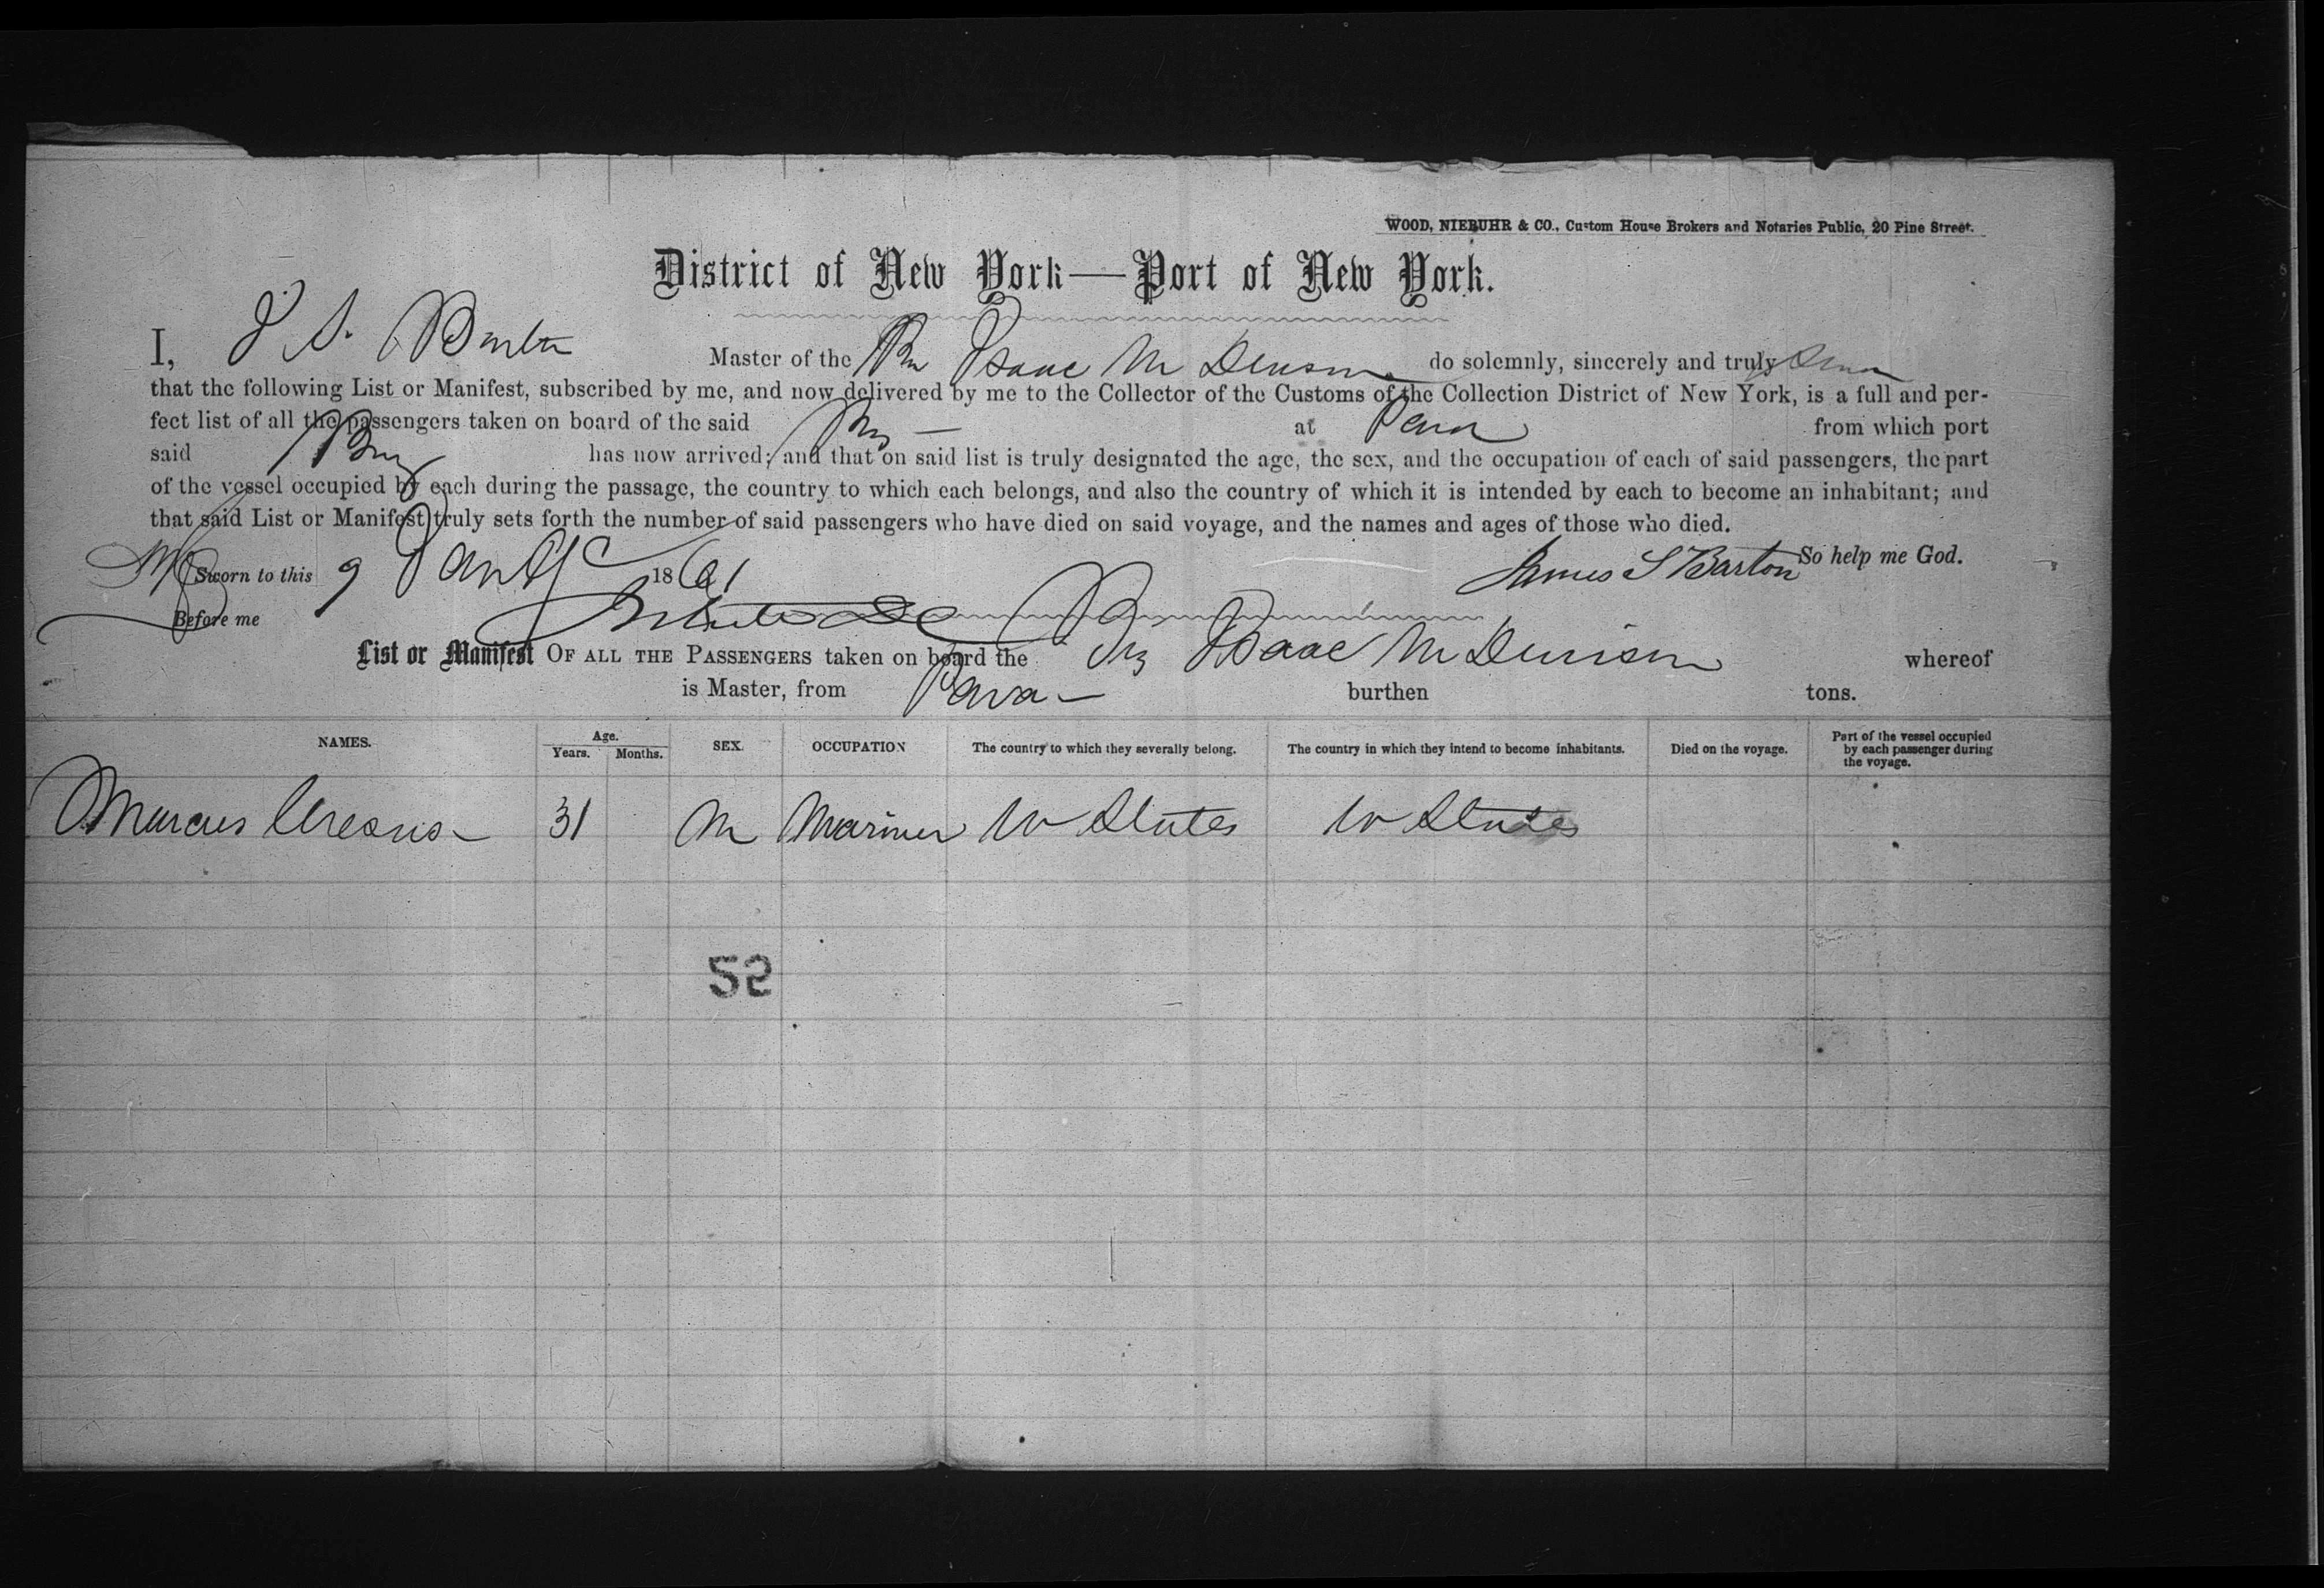 WOOD, NIEBUHR & CO., Custom House Brokers and Notaries Public, 20 Pine Street.
District of New York—Port of New York.
I, J S. Barton Master of the Brig Isaac M Denison do solemnly, sincerely and truly swear
that the following List or Manifest, subscribed by me, and now delivered by me to the Collector of the Customs of the Collection District of New York, is a full and per-
fect list of all the passengers taken on board of the said Brig — at Para from which port
said Brig has now arrived; and that on said list is truly designated the age, the sex, and the occupation of each of said passengers, the part
of the vessel occupied by each during the passage, the country to which each belongs, and also the country of which it is intended by each to become an inhabitant; and
that said List or Manifest truly sets forth the number of said passengers who have died on said voyage, and the names and ages of those who died.
So help me God.
Sworn to this 9 Jany 1861 James S Barton
Before me
List or Manifest OF ALL THE PASSENGERS taken on board the Brig Isaac M Denison whereof
is Master, from Para — burthen tons.
NAMES. Age. Years. Months. SEX. OCCUPATION The country to which they severally belong. The country in which they intend to become inhabitants. Died on the voyage. Part of the vessel occupied by each passenger during the voyage.
Marcus 31 M Mariner U States U States
52